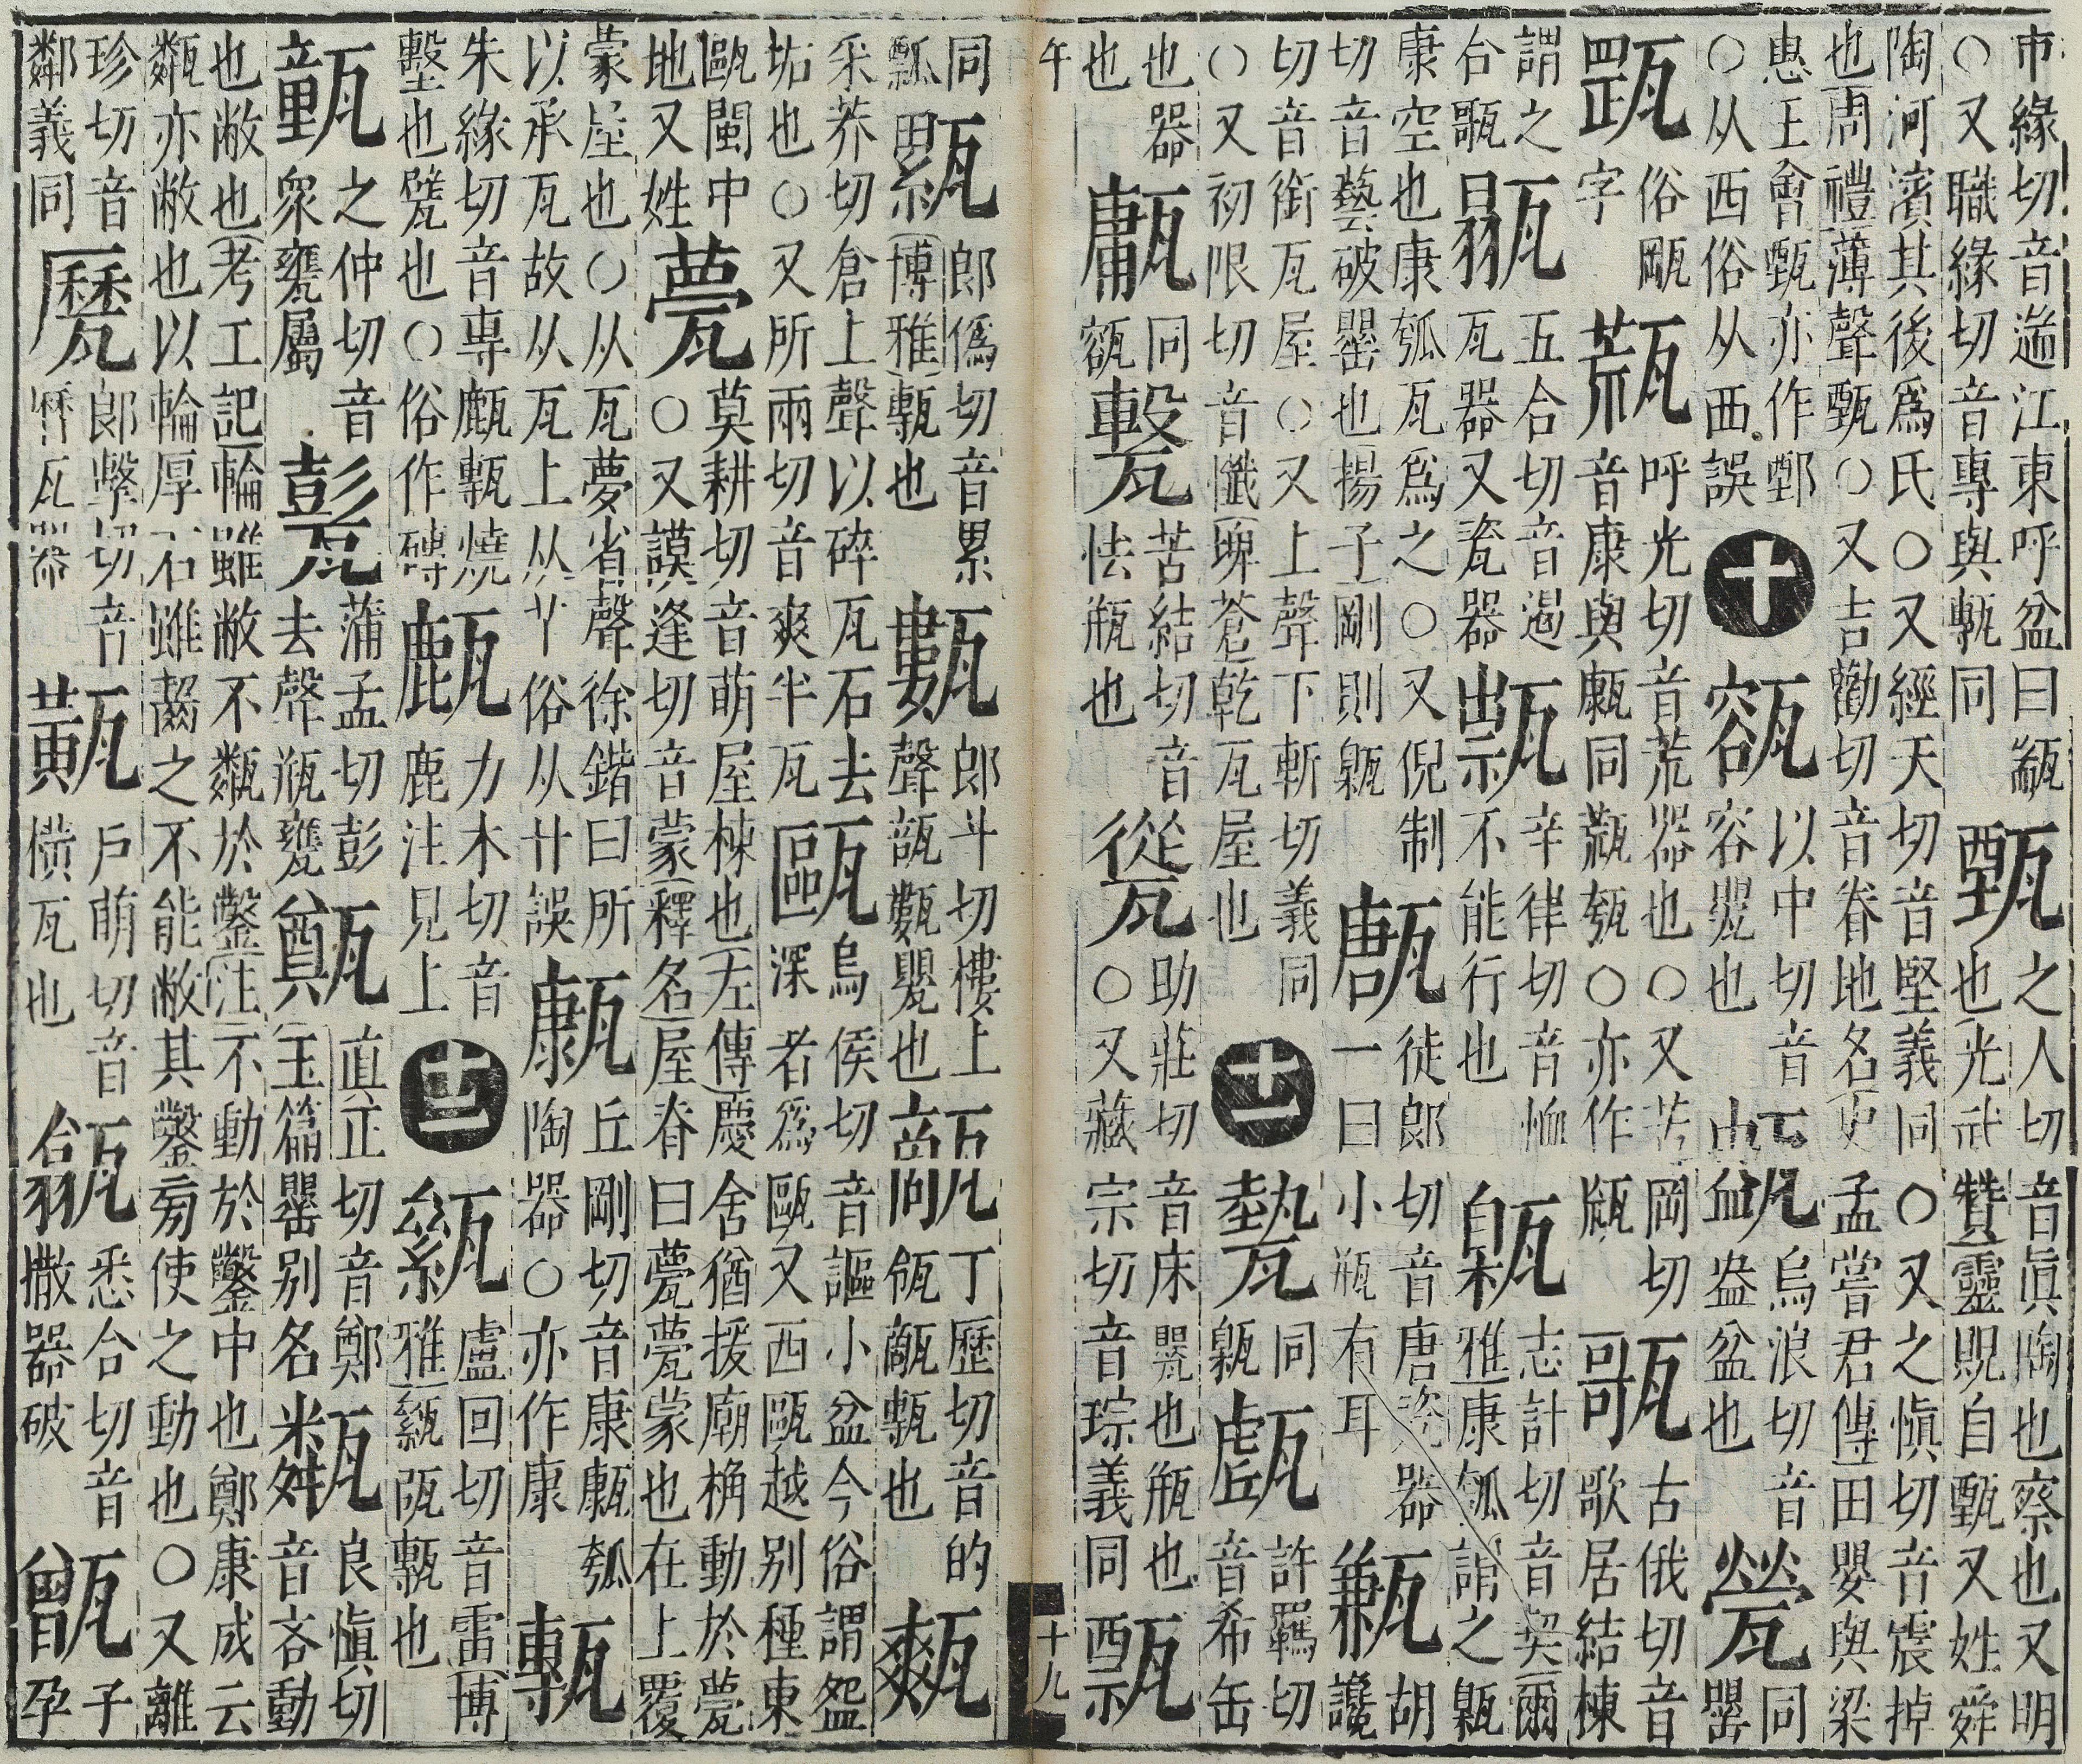 市緣切音遄江東呼盆曰
○又職緣切音專與甎同
甄
之人切音眞陶也察也又明
也光武贊靈貺自甄又姓舜
陶河濱其後爲氏○又經天切音堅義同○又之愼切音震掉
也周禮薄聲甄○又吉勸切音眷地名史孟嘗君傳田嬰與梁
惠王會甄亦作鄄
○从西俗从覀誤
十
以中切音
容甖也
烏浪切音
盎盆也
甇
同
罌
俗甌
字
呼光切音荒器也○又苦岡切
音康與 同 瓠○亦作
古俄切音
歌居結棟
謂之
合
五合切音遏
瓦器又瓷器
辛律切音恤
不能行也
甈
志計切音契爾
雅康瓠謂之甈
康空也康瓠瓦爲之○又倪制
切音藝破罌也揚子剛則甈
徒郎切音唐瓷器
一曰小瓶有耳
胡
讒
切音銜瓦屋○又上聲下斬切義同
○又初限切音懺埤蒼乾瓦屋也
十一
同
甈
許羈切
音希缶
也器
也
同
苦結切音
怯瓶也
助莊切音床甖也瓶也
○又藏宗切音琮義同
十九
同
瓢
郎僞切音累
博雅甎也
甊
郎斗切樓上
聲瓿甊甖也
甋
丁歷切音的
瓴甋甎也
采莽切倉上聲以碎瓦石去
垢也○又所兩切音爽半瓦
甌
烏侯切音謳小盆今俗謂盌
深者爲甌又西甌越別種東
甌閩中
地又姓
甍
莫耕切音萌屋棟也左傳慶舍猶援廟桷動於甍
○又謨逢切音蒙釋名屋脊曰甍甍蒙也在上覆
蒙屋也○从瓦夢省聲徐鍇曰所
以承瓦故从瓦上从艹俗从廿誤
丘剛切音康 瓠
陶器○亦作康
甎
朱緣切音專 甎燒
墼也甓也○俗作磚
力木切音
鹿注見上
十二
盧回切音雷博
雅 瓳甎也
之仲切音
衆甕屬
甏
蒲孟切彭
去聲瓶甕
直正切音鄭
玉篇罌別名
甐
良愼切
音吝動
也敝也考工記輪雖敝不甐於鑿注不動於鑿中也鄭康成云
甐亦敝也以輪厚石雖齧之不能敝其鑿旁使之動也○又離
珍切音
鄰義同
郎擊切音
曆瓦器
戶萌切音
橫瓦也
悉合切音
撒器破
甑
子
孕